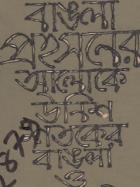 বাঙলা
প্রহসনের
আলোকে
উনিশ
শতকের
বাঙলা
ও